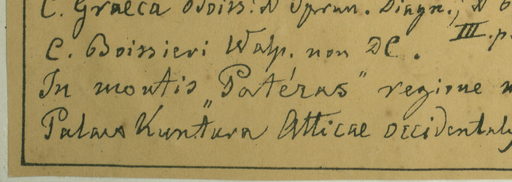 C. Graeca Boiss. & Sprun. Diagn.,
III. p.
C. Boissieri Walp. non DC.
In montis "Patéras" regione
Palaea Kuntura Atticae occidental